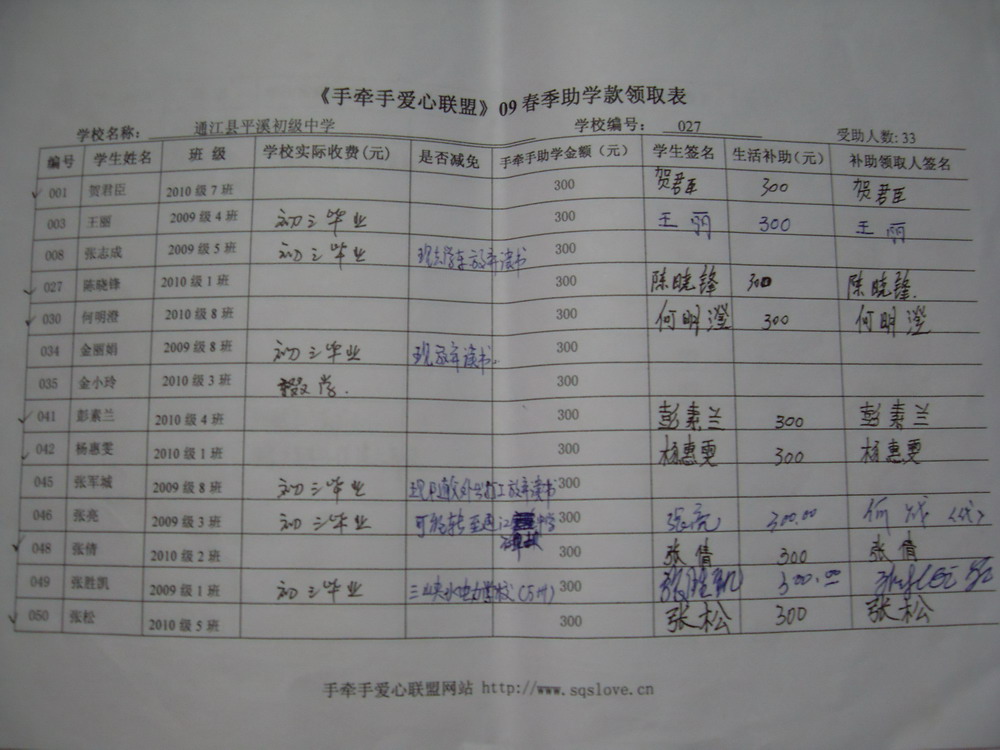 《手牵手爱心联盟》09 春季助学款领取表
学校名称： 通江县平溪初级中学 学校编号： 027 受助人数: 33
编号 学生姓名 班 级 学校实际收费(元) 是否减免 手牵手助学金额（元） 学生签名 生活补助(元) 补助领取人签名
001 贺君臣 2010 级 7 班 300 贺君臣 300 贺君臣
003 王丽 2009 级 4 班 初三毕业 300 王丽 300 王丽
008 张志成 2009 级 5 班 初三毕业 放弃读书 300
027 陈晓锋 2010 级 1 班 300 陈晓锋 300 陈晓锋
030 何明澄 2010 级 8 班 300 何明澄 300 何明澄
034 金丽娟 2009 级 8 班 初三毕业 现放弃读书. 300
035 金小玲 2010 级 3 班 辍学. 300
041 彭素兰 2010 级 4 班 300 彭素兰 300 彭素兰
042 杨惠雯 2010 级 1 班 300 杨惠雯 300 杨惠雯
045 张军城 2009 级 8 班 初三毕业 放弃读书 300
046 张亮 2009 级 3 班 初三毕业 可能转至通江 300 张亮 300.00 (代)
048 张倩 2010 级 2 班 300 张倩 300 张倩
049 张胜凯 2009 级 1 班 初三毕业 三峡水电力学校(万州) 300 张胜凯 300.00
050 张松 2010 级 5 班 300 张松 300 张松
手牵手爱心联盟网站 http://www.sqslove.cn